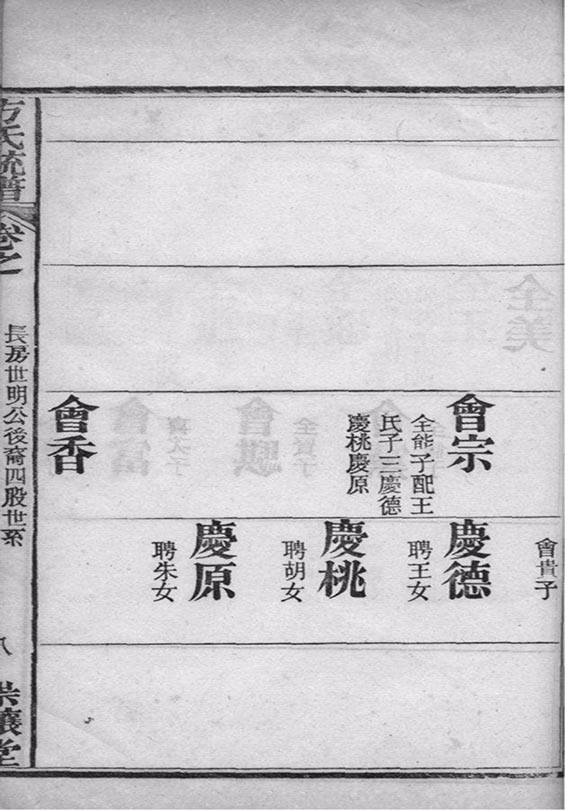 會貴子
會宗
全能子配王
氏子三慶德
慶桃慶原
慶德
聘王女
慶桃
聘胡女
慶原
聘朱女
會香
方氏統譜
卷之
長房世明公後裔四股世系
八